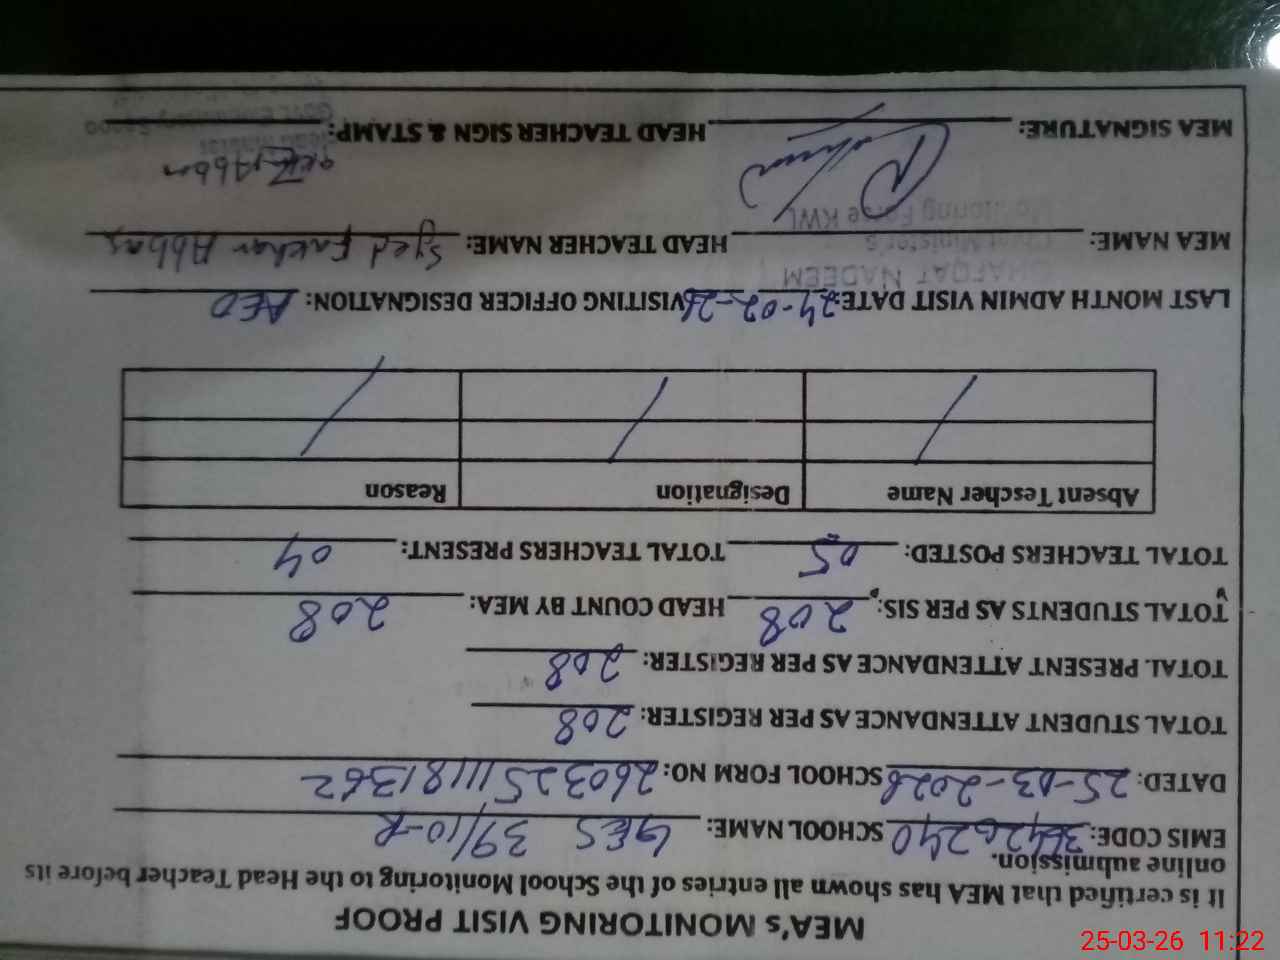 MEA's MONITORING VISIT PROOF
It is certified that MEA has shown all entries of the School Monitoring to the Head Teacher before its
online aubmission.
EMIS CODE: SCHOOL NAME: GES 39/10-R
DATED: 25-03-2026 SCHOOL FORM NO: 260325111181362
TOTAL STUDENT ATTENDANCE AS PER REGISTER: 208
TOTAL PRESENT ATTENDANCE AS PER REGISTER: 208
TOTAL STUDENTS AS PER SIS: 208 HEAD COUNT BY MEA: 208
TOTAL TEACHERS POSTED: 05 TOTAL TEACHERS PRESENT: 04
Absent Tescher Name Designation Reason
LAST MONTH ADMIN VISIT DATE: 24-02-26 VISITING OFFICER DESIGNATION: AEO
MEA NAME: HEAD TEACHER NAME: Syed Fakhar Abbas
SHAFQAT NADEEM
Chief Minister's
Monitoring Force KWL
MEA SIGNATURE: HEAD TEACHER SIGN & STAMP:
25-03-26 11:22